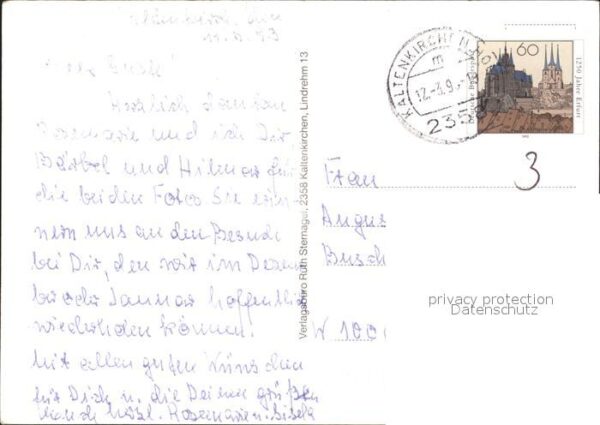 Kaltenkirchen, den
11.3.93
Herzlich danken
Rosemarie und ich Dir,
Bärbel und Hilmar für
die beiden Fotos Sie erin-
nern uns an den Besuch
bei Dir, den wir im Dezem
ber oder Januar hoffentlich
wiederholen können.
Mit allen guten Wünschen
für Dich u. die Deinen grüßen
herzl. Rosemarie u. Gisela
Verlagsbüro Ruth Sternagel, 2358 Kaltenkirchen, Lindrehm 13
KALTENKIRCHEN, HO
m
12.-3.9
2358
60
1250 Jahre Erfurt
Deutsche Bundespost
3
Frau
Angus
Busch
W 1000
privacy protection
Datenschutz